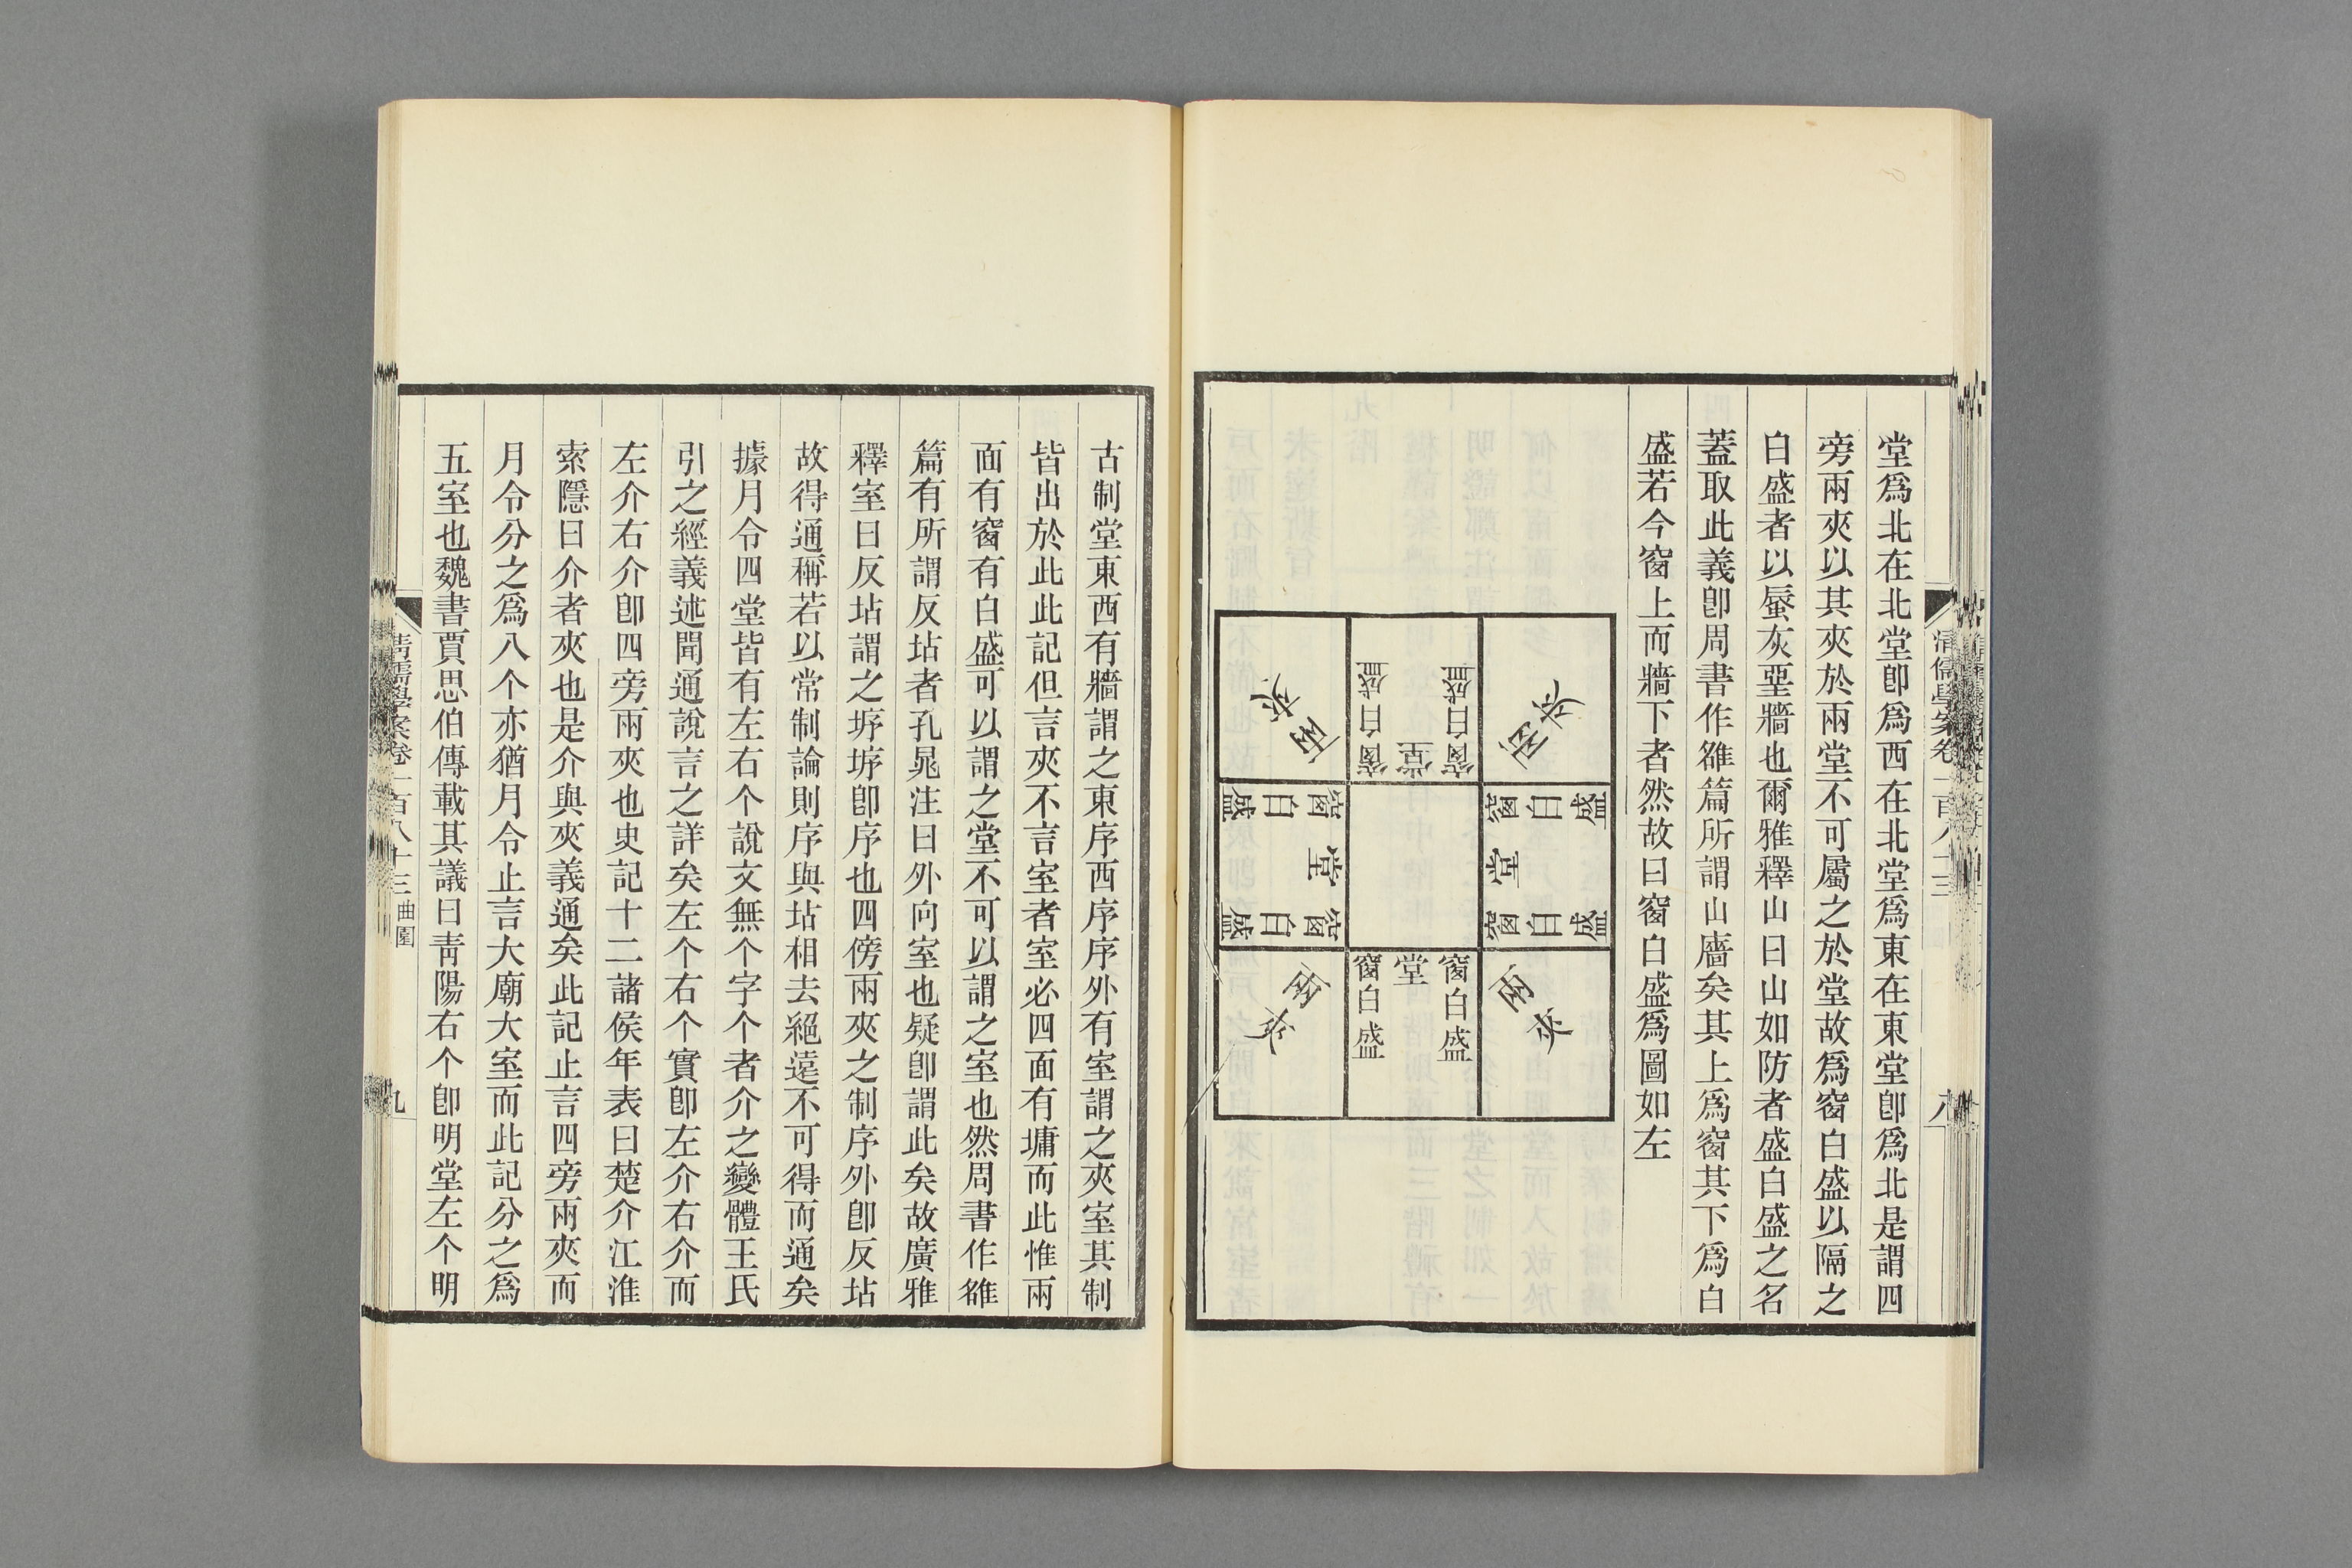 堂爲北在北堂卽爲西在北堂爲東在東堂卽爲北是謂四
旁兩夾以其夾於兩堂不可屬之於堂故爲窗白盛以隔之
白盛者以蜃灰堊牆也爾雅釋山曰山如防者盛白盛之名
蓋取此義卽周書作雒篇所謂山廧矣其上爲窗其下爲白
盛若今窗上而牆下者然故曰窗白盛爲圖如左
兩夾
窗白盛
堂
窗白盛
兩夾
窗白盛
堂
窗白盛
窗白盛
堂
窗白盛
兩夾
窗白盛
堂
窗白盛
兩夾
古制堂東西有牆謂之東序西序序外有室謂之夾室其制
皆出於此此記但言夾不言室者室必四面有墉而此惟兩
面有窗有白盛可以謂之堂不可以謂之室也然周書作雒
篇有所謂反坫者孔晁注曰外向室也疑卽謂此矣故廣雅
釋室曰反坫謂之垿垿卽序也四傍兩夾之制序外卽反坫
故得通稱若以常制論則序與坫相去絕遠不可得而通矣
據月令四堂皆有左右个說文無个字个者介之變體王氏
引之經義述聞通說言之詳矣左个右个實卽左介右介而
左介右介卽四旁兩夾也史記十二諸侯年表曰楚介江淮
索隱曰介者夾也是介與夾義通矣此記止言四旁兩夾而
月令分之爲八个亦猶月令止言大廟大室而此記分之爲
五室也魏書賈思伯傳載其議曰靑陽右个卽明堂左个明
清儒學案卷一百八十三 曲園
九